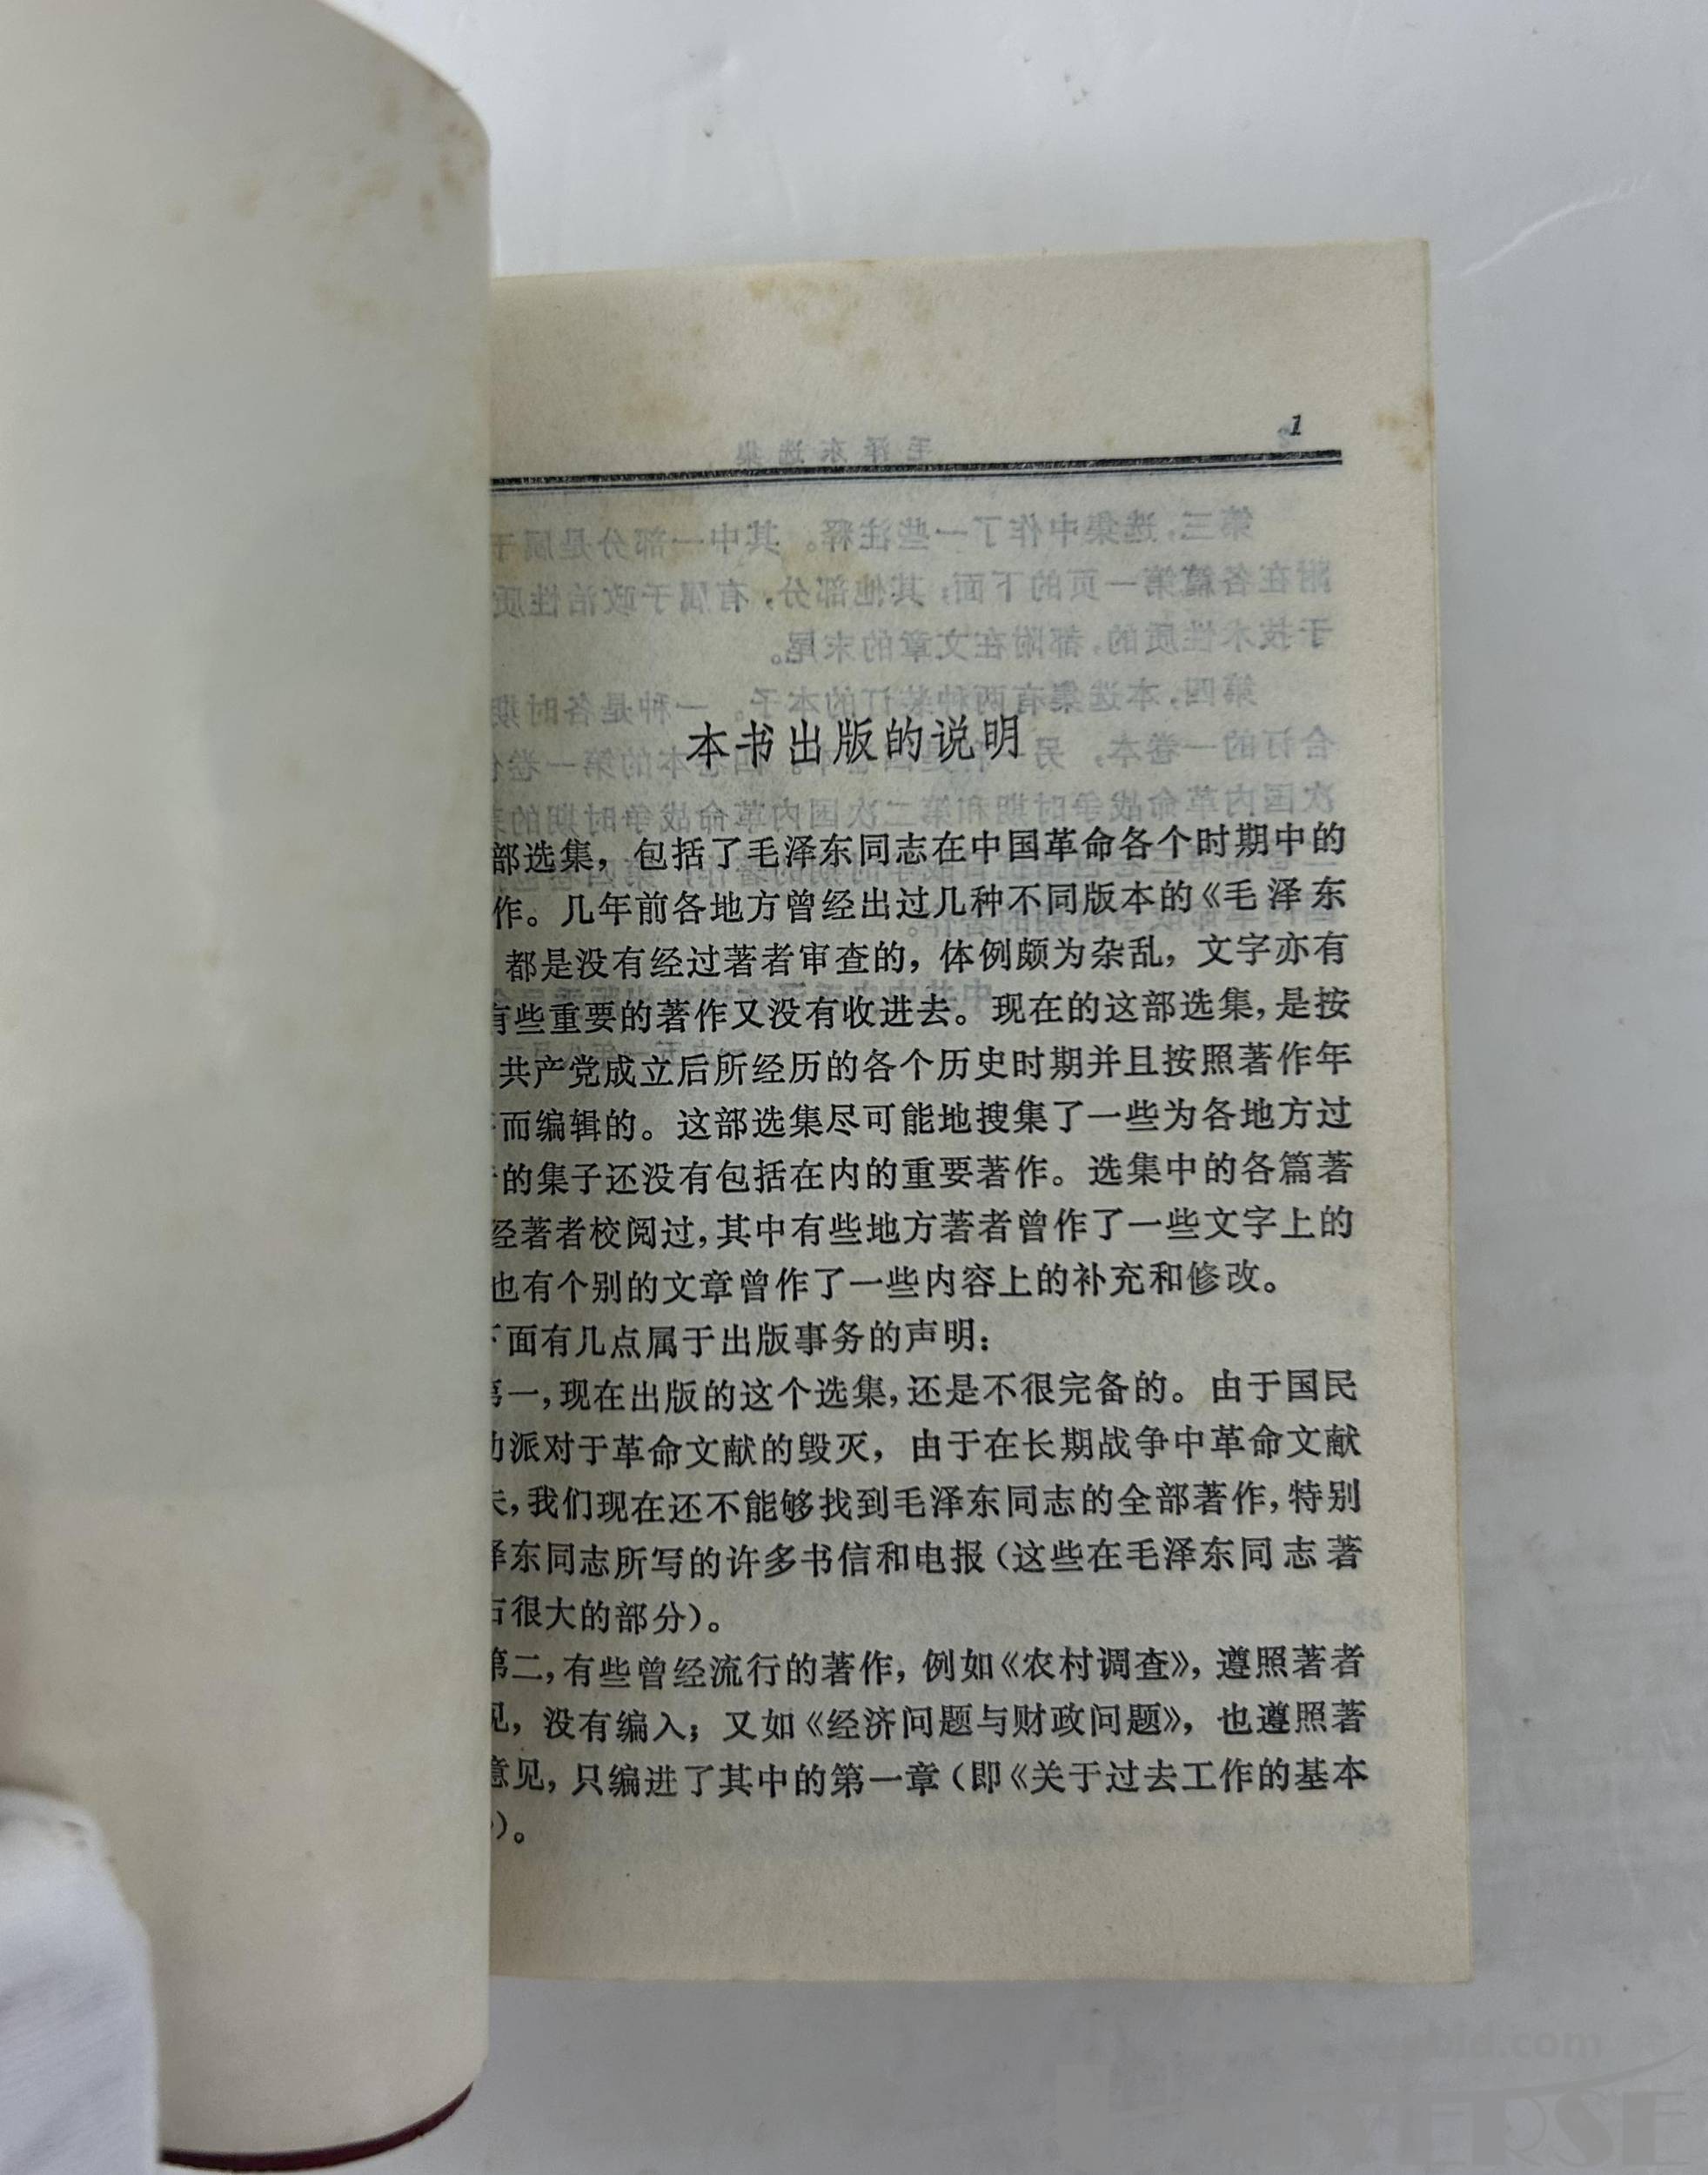 1
本书出版的说明
部选集，包括了毛泽东同志在中国革命各个时期中的
作。几年前各地方曾经出过几种不同版本的《毛泽东
都是没有经过著者审查的，体例颇为杂乱，文字亦有
有些重要的著作又没有收进去。现在的这部选集，是按
共产党成立后所经历的各个历史时期并且按照著作年
而编辑的。这部选集尽可能地搜集了一些为各地方过
的集子还没有包括在内的重要著作。选集中的各篇著
经著者校阅过，其中有些地方著者曾作了一些文字上的
也有个别的文章曾作了一些内容上的补充和修改。
下面有几点属于出版事务的声明：
第一，现在出版的这个选集，还是不很完备的。由于国民
动派对于革命文献的毁灭，由于在长期战争中革命文献
失，我们现在还不能够找到毛泽东同志的全部著作，特别
泽东同志所写的许多书信和电报（这些在毛泽东同志著
占很大的部分）。
第二，有些曾经流行的著作，例如《农村调查》，遵照著者
见，没有编入；又如《经济问题与财政问题》，也遵照著
意见，只编进了其中的第一章（即《关于过去工作的基本
）。
bid.com
VERSE